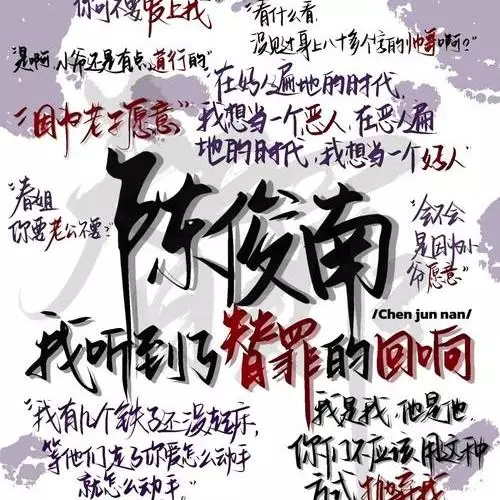 你可不要爱上我"
"看什么看,
没见过身上八十多个字的帅哥啊?"
"是啊,小爷还是有点道行的"
"因为老子愿意"
"在好人遍地的时代,
我想当一个恶人,在恶人遍
地的时代,我想当一个好人"
"春姐
你要老公不要?"
陈俊南
"会不会
是因为小
爷愿意"
/Chen jun nan/
我听到了替罪的回响
"我有几个铁子还没起床,
等他们走了你爱怎么动手
就怎么动手。"
我是我,他是他,
你们不应该用这种
方式抛弃我